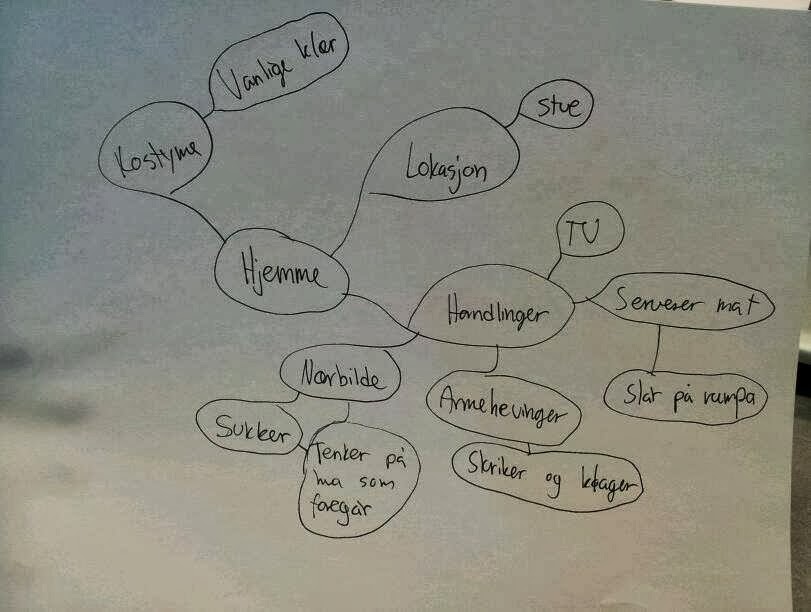 Vanlige klær
Kostyme
stue
Lokasjon
Hjemme
TV
Handlinger
Serverer mat
Slår på rumpa
Nærbilde
Armhevinger
Sukker
Skriker og klager
Tenker på
hva som
foregår